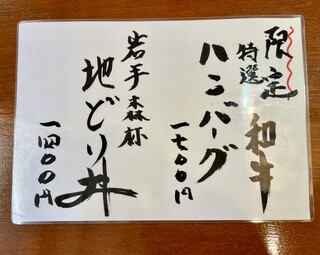 限定
特選 和牛
ハンバーグ
一七〇〇円
岩手森林どり
地どり丼
一四〇〇円